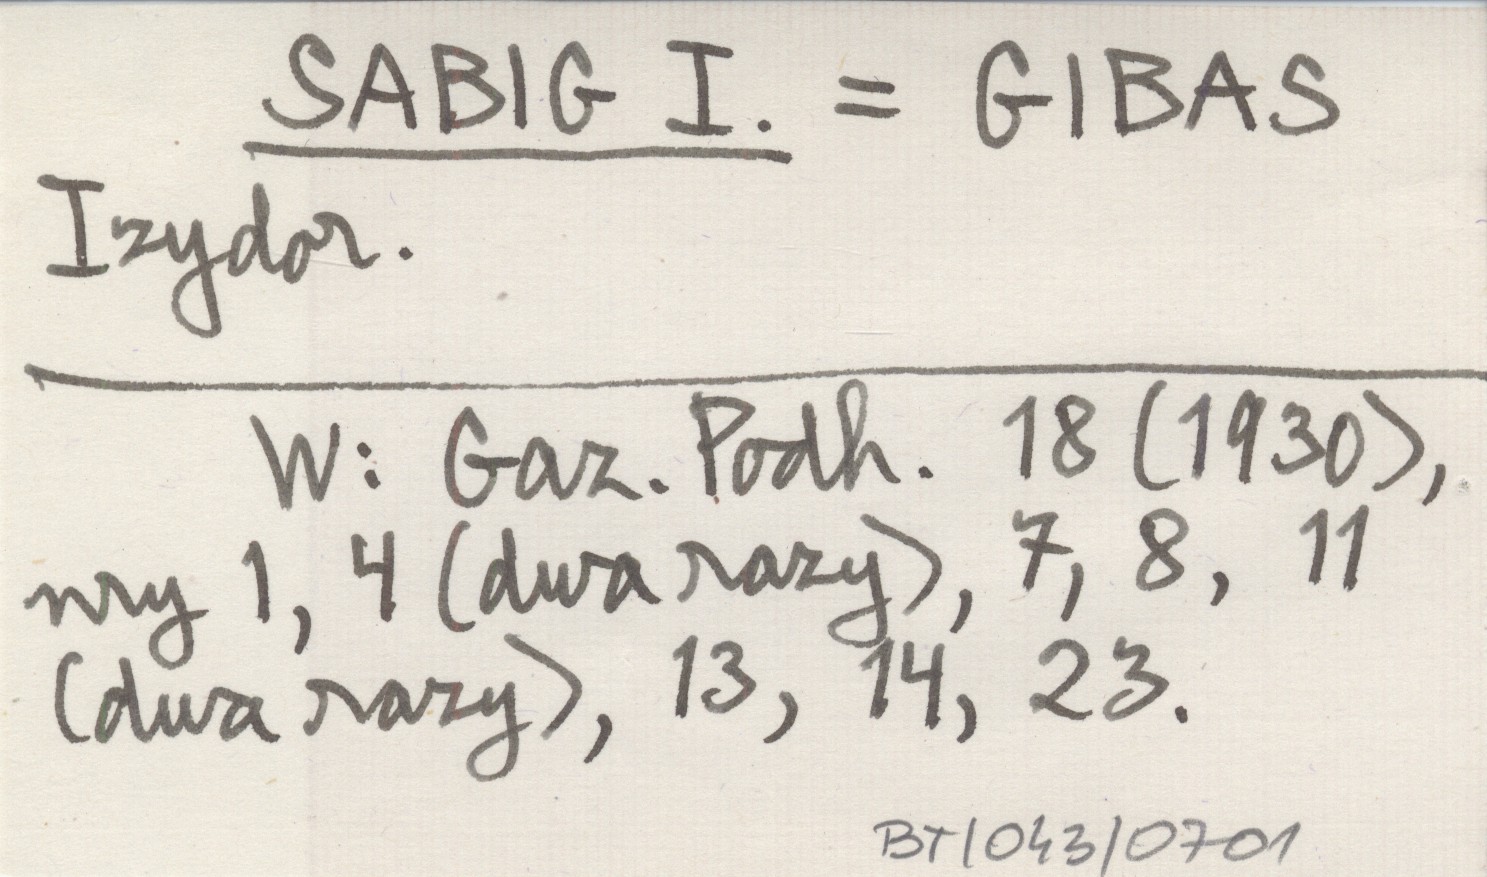 SABIG I. = GIBAS
Izydor.
W: Gaz. Podh. 18 (1930),
nry 1, 4 (dwa razy), 7, 8, 11
(dwa razy), 13, 14, 23.
BT/043/0701